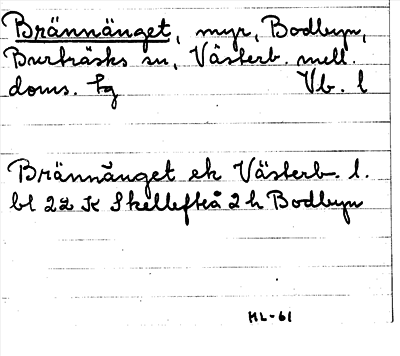 Brännänget, myr, Bodbyn,
Burträsks sn, Västerb. mell.
doms. fg Vb. l
Brännänget ek Västerb. l.
bl 22 K Skellefteå 2 h Bodbyn
HL-61